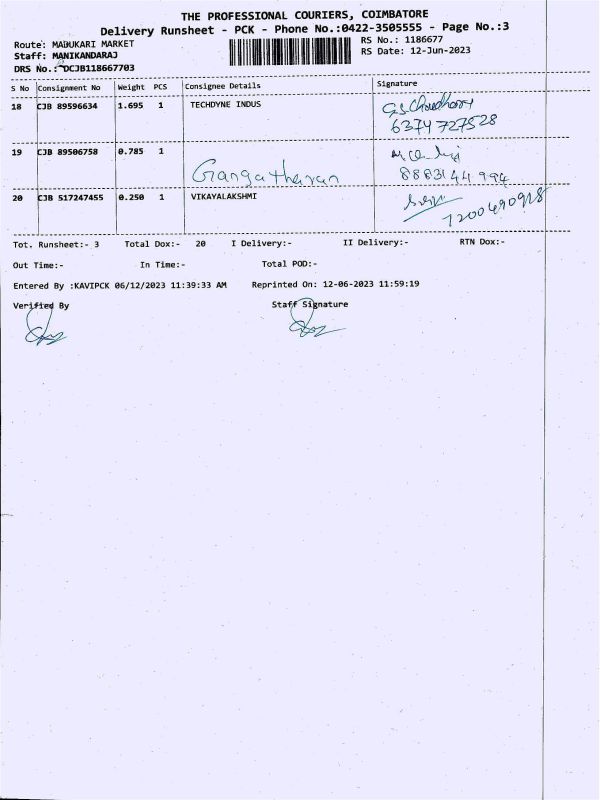 THE PROFESSIONAL COURIERS, COIMBATORE
Delivery Runsheet - PCK - Phone No.:0422-3505555 - Page No.:3
Route: MADUKARI MARKET RS No.: 1186677
Staff: MANIKANDARAJ RS Date: 12-Jun-2023
DRS No.: DCJB118667703
S No Consignment No Weight PCS Consignee Details Signature
18 CJB 89596634 1.695 1 TECHDYNE INDUS G.S. Choudhary
6374 727528
19 CJB 89506758 0.785 1
Gangatharan 8883144 994
20 CJB 517247455 0.250 1 VIKAYALAKSHMI
7200690928
Tot. Runsheet:- 3 Total Dox:- 20 I Delivery:- II Delivery:- RTN Dox:-
Out Time:- In Time:- Total POD:-
Entered By :KAVIPCK 06/12/2023 11:39:33 AM Reprinted On: 12-06-2023 11:59:19
Verified By Staff Signature